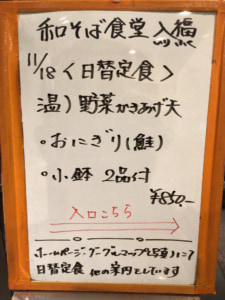 和そば食堂 入福
いりふく
11/18 〈日替定食〉
温) 野菜かきあげ天
・おにぎり(鮭)
・小鉢 2品付
¥850.-
入口こちら
ホームページ・グーグルマップ
日替定食 他の案内しています